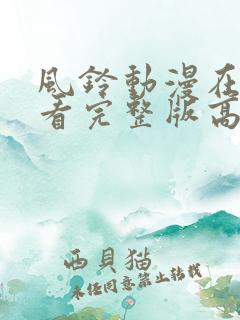 風鈴動漫在
看完整版高
西貝猫
未经同意禁止转载